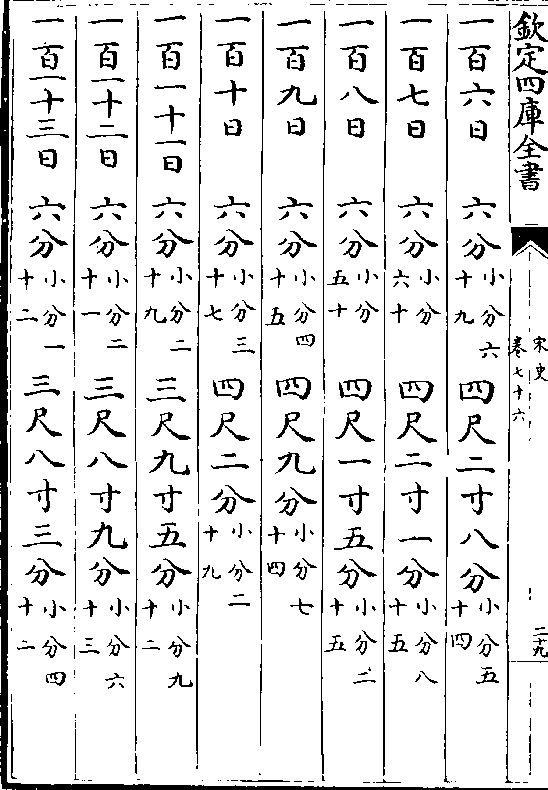 欽定四庫全書
宋史
卷七十六
二十九
一百六日 六分小分六十九 四尺二寸八分小分五十四
一百七日 六分小分六十 四尺二寸一分小分八十五
一百八日 六分小分五十 四尺一寸五分小分二十五
一百九日 六分小分四十五 四尺九分小分七十四
一百十日 六分小分三十七 四尺二分小分二十九
一百一十一日 六分小分二十九 三尺九寸五分小分九十二
一百一十二日 六分小分二十一 三尺八寸九分小分六十三
一百一十三日 六分小分一十二 三尺八寸三分小分四十二